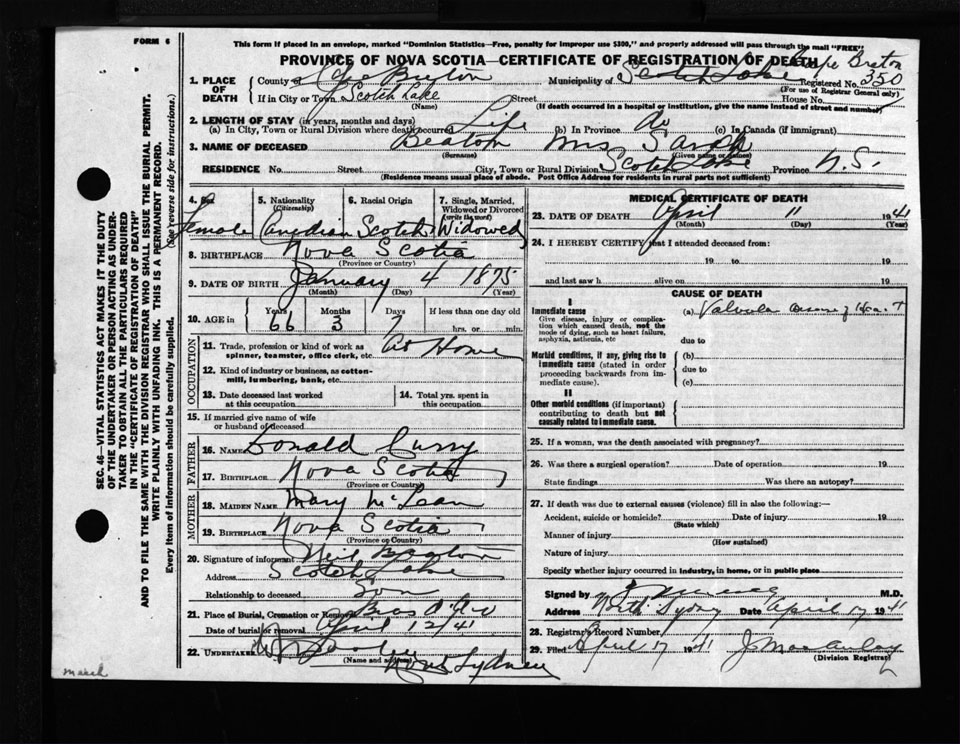 FORM 6
This form if placed in an envelope, marked "Dominion Statistics—Free, penalty for improper use $300," and properly addressed will pass through the mail "FREE"
PROVINCE OF NOVA SCOTIA—CERTIFICATE OF REGISTRATION OF DEATH Cape Breton
1. PLACE OF DEATH County of Cape Breton Municipality of Scotch Lake Registered No. 350
(For use of Registrar General only)
If in City or Town Scotch Lake Street House No.
(Name) (If death occurred in a hospital or institution, give the name instead of street and number)
2. LENGTH OF STAY (in years, months and days)
(a) In City, Town or Rural Division where death occurred Life (b) In Province do (c) In Canada (if immigrant)
3. NAME OF DECEASED Beaton Mrs Sarah
(Surname) (Given name or names)
RESIDENCE No. Street City, Town or Rural Division Scotch Lake Province N.S.
(Residence means usual place of abode. Post Office Address for residents in rural parts not sufficient)
4. Female
5. Nationality (Citizenship) Canadian
6. Racial Origin Scotch
7. Single, Married, Widowed or Divorced (write the word) Widowed
8. BIRTHPLACE Nova Scotia
(Province or Country)
9. DATE OF BIRTH January 4 1875
(Month) (Day) (Year)
10. AGE in Years 66 Months 3 Days 7 If less than one day old
hrs. or min.
OCCUPATION
11. Trade, profession or kind of work as spinner, teamster, office clerk, etc. At Home
12. Kind of industry or business, as cotton-mill, lumbering, bank, etc.
13. Date deceased last worked at this occupation
14. Total yrs. spent in this occupation
15. If married give name of wife or husband of deceased
FATHER
16. NAME Donald Curry
17. BIRTHPLACE Nova Scotia
(Province or Country)
MOTHER
18. MAIDEN NAME Mary McLean
19. BIRTHPLACE Nova Scotia
(Province or Country)
20. Signature of informant Neil Beaton
Address Scotch Lake
Relationship to deceased Son
21. Place of Burial, Cremation or Removal Bras d'Or
Date of burial or removal April 12/41
22. UNDERTAKER
(Name and address) North Sydney
MEDICAL CERTIFICATE OF DEATH
23. DATE OF DEATH April 11 1941
(Month) (Day) (Year)
24. I HEREBY CERTIFY that I attended deceased from:
19 to 19
and last saw h alive on 19
CAUSE OF DEATH
I
Immediate cause
Give disease, injury or complication which caused death, not the mode of dying, such as heart failure, asphyxia, asthenia, etc
(a) Valvular Disease of Heart
due to
Morbid conditions, if any, giving rise to immediate cause (stated in order proceeding backwards from immediate cause).
(b)
due to
(c)
II
Other morbid conditions (if important) contributing to death but not causally related to immediate cause.
25. If a woman, was the death associated with pregnancy?
26. Was there a surgical operation? Date of operation 19
State findings Was there an autopsy?
27. If death was due to external causes (violence) fill in also the following:—
Accident, suicide or homicide? Date of injury 19
(State which)
Manner of injury
(How sustained)
Nature of injury
Specify whether injury occurred in industry, in home, or in public place
Signed by M.D.
Address North Sydney Date April 17 1941
28. Registrar's Record Number
29. Filed April 17 1941 J Macaulay
(Division Registrar)
SEC. 46—VITAL STATISTICS ACT MAKES IT THE DUTY
OF THE UNDERTAKER OR PERSON ACTING AS UNDER-
TAKER TO OBTAIN ALL THE PARTICULARS REQUIRED
IN THE "CERTIFICATE OF REGISTRATION OF DEATH"
AND TO FILE THE SAME WITH THE DIVISION REGISTRAR WHO SHALL ISSUE THE BURIAL PERMIT.
WRITE PLAINLY WITH UNFADING INK. THIS IS A PERMANENT RECORD.
Every item of information should be carefully supplied. (See reverse side for instructions.)